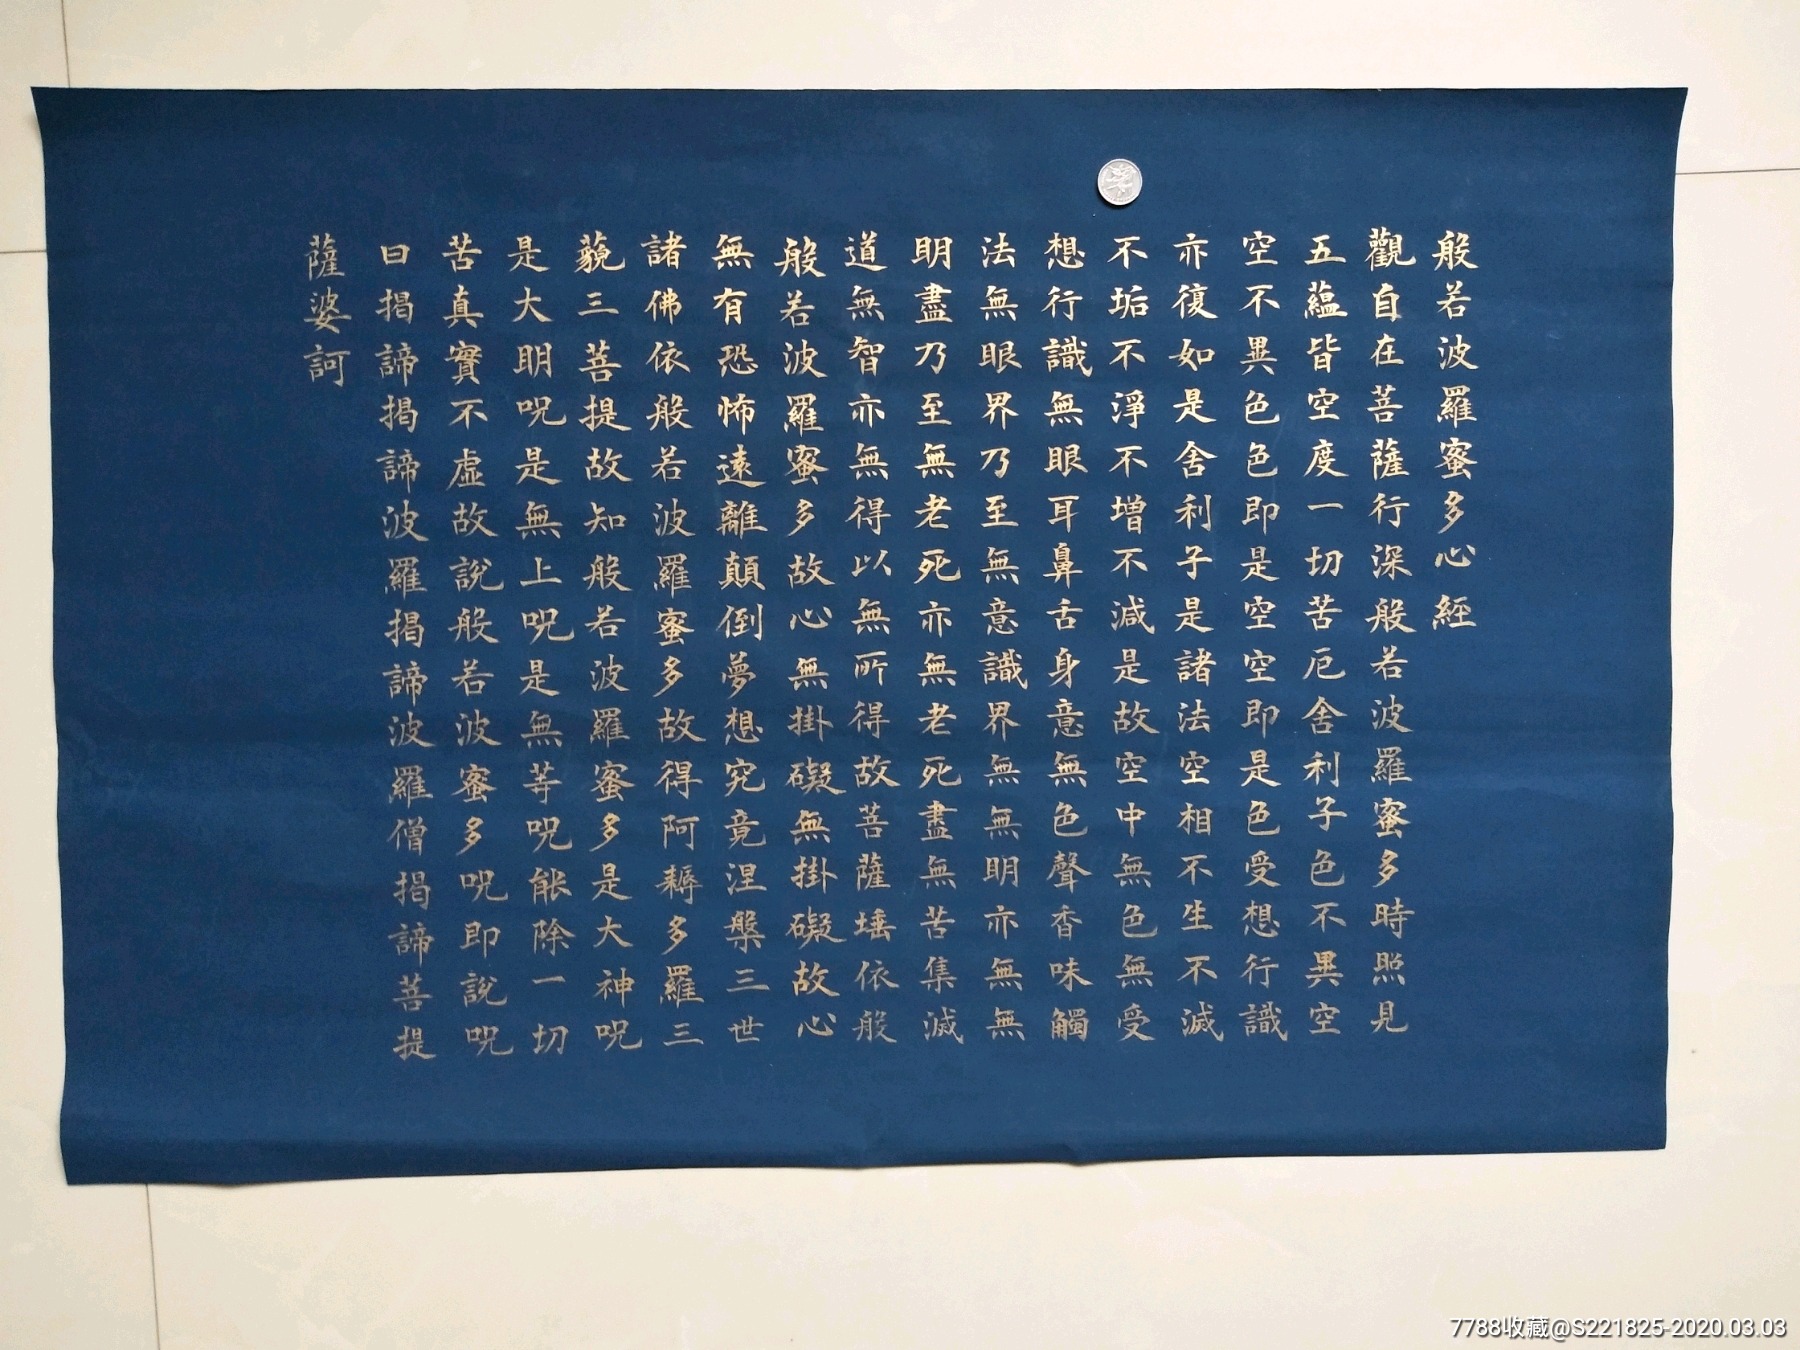 般若波羅蜜多心經
觀自在菩薩行深般若波羅蜜多時照見
五蘊皆空度一切苦厄舍利子色不異空
空不異色色即是空空即是色受想行識
亦復如是舍利子是諸法空相不生不滅
不垢不淨不增不減是故空中無色無受
想行識無眼耳鼻舌身意無色聲香味觸
法無眼界乃至無意識界無無明亦無無
明盡乃至無老死亦無老死盡無苦集滅
道無智亦無得以無所得故菩薩埵依般
般若波羅蜜多故心無掛礙無掛礙故心
無有恐怖遠離顛倒夢想究竟涅槃三世
諸佛依般若波羅蜜多故得阿耨多羅三
藐三菩提故知般若波羅蜜多是大神呪
是大明呪是無上呪是無等呪能除一切
苦真實不虛故說般若波蜜多呪即說呪
曰揭諦揭諦波羅揭諦波羅僧揭諦菩提
薩婆訶
7788收藏@S221825-2020.03.03